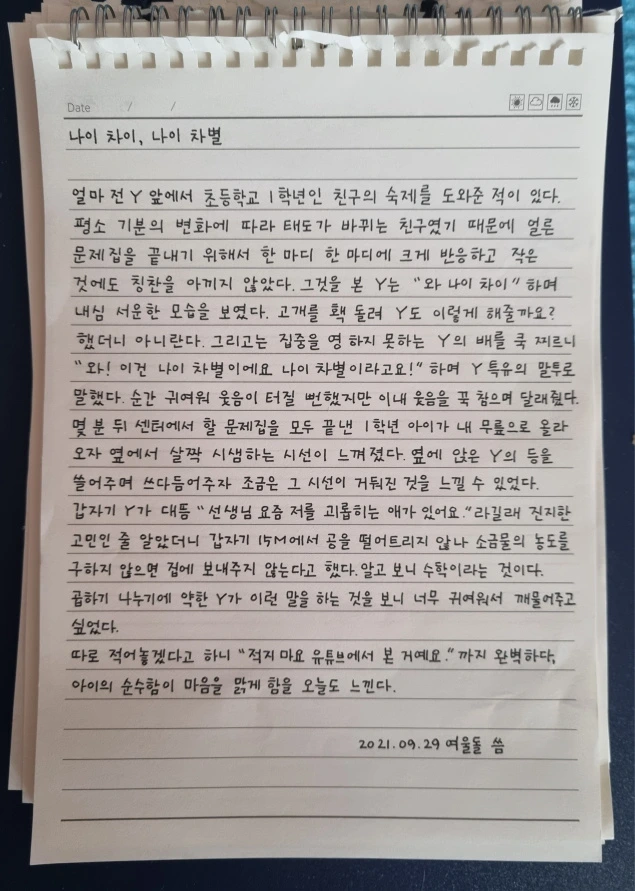 Date / /
나이 차이, 나이 차별
얼마 전 Y 앞에서 초등학교 1학년인 친구의 숙제를 도와준 적이 있다.
평소 기분의 변화에 따라 태도가 바뀌는 친구였기 때문에 얼른
문제집을 끝내기 위해서 한 마디 한 마디에 크게 반응하고 작은
것에도 칭찬을 아끼지 않았다. 그것을 본 Y는 "와 나이 차이" 하며
내심 서운한 모습을 보였다. 고개를 홱 돌려 Y도 이렇게 해줄까요?
했더니 아니란다. 그리고는 집중을 영 하지 못하는 Y의 배를 쿡 찌르니
"와! 이건 나이 차별이에요 나이 차별이라고요!" 하며 Y 특유의 말투로
말했다. 순간 귀여워 웃음이 터질 뻔했지만 이내 웃음을 꾹 참으며 달래줬다.
몇 분 뒤 센터에서 할 문제집을 모두 끝낸 1학년 아이가 내 무릎으로 올라
오자 옆에서 살짝 시샘하는 시선이 느껴졌다. 옆에 앉은 Y의 등을
쓸어주며 쓰다듬어주자 조금은 그 시선이 거둬진 것을 느낄 수 있었다.
갑자기 Y가 대뜸 "선생님 요즘 저를 괴롭히는 애가 있어요." 라길래 진지한
고민인 줄 알았더니 갑자기 15M에서 공을 떨어트리지 않나 소금물의 농도를
구하지 않으면 집에 보내주지 않는다고 했다. 알고 보니 수학이라는 것이다.
곱하기 나누기에 약한 Y가 이런 말을 하는 것을 보니 너무 귀여워서 깨물어주고
싶었다.
따로 적어놓겠다고 하니 "적지 마요 유튜브에서 본 거예요." 까지 완벽하다,
아이의 순수함이 마음을 맑게 함을 오늘도 느낀다.
2021.09.29 여울돌 씀